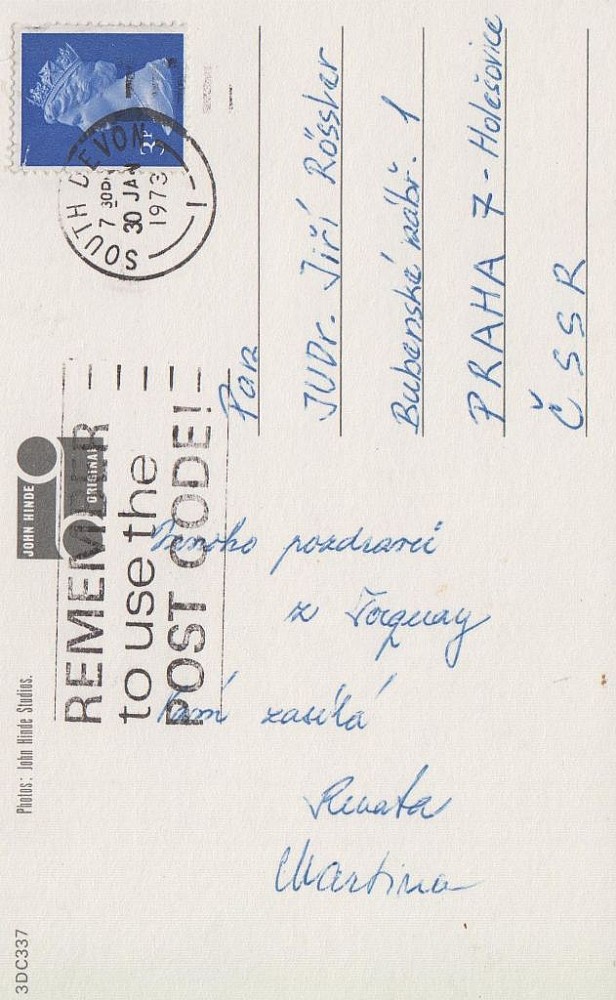 3P
SOUTH DEVON
7 30PM
30 JAN
1973
REMEMBER
to use the
POST CODE!
JOHN HINDE
ORIGINAL
Pan
JUDr. Jiří Rössler
Bubenské nábř. 1
PRAHA 7 - Holešovice
ČSSR
Mnoho pozdravů
z Torquay
Vám zasílá
Renata
Martina
Photos: John Hinde Studios.
3DC337